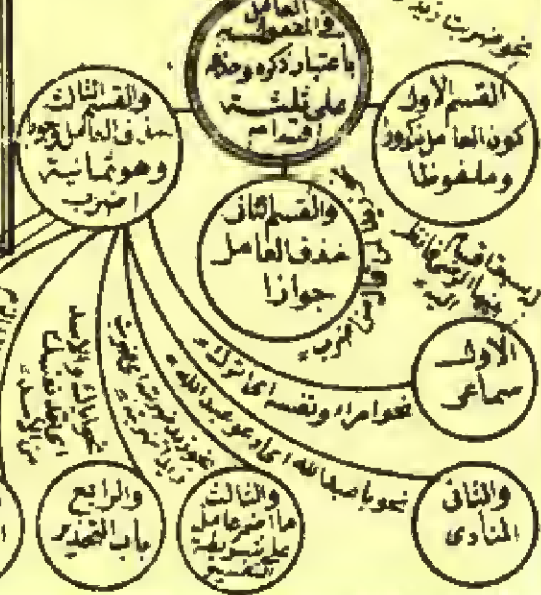 العامل
في المفعول به
باعتبار ذكره وحذفه
على ثلثة
اقسام
نحو ضربت زيدا
القسم الاول
كون العامل مذكورا
وملفوظا
والقسم الثانى
حذف العامل
جوازا
والقسم الثالث
حذف العامل وجوبا
وهو ثمانية
اضرب
الاول
سماعى
نحو امراء ونفسه اى اترك
والثانى
المنادى
نحو يا عبد الله اى ادعو عبد الله
والثالث
ما اضمر عامله
على شريطة
التفسير
نحو زيدا ضربته اى ضربت
والرابع
باب التحذير
نحو اياك والاسد